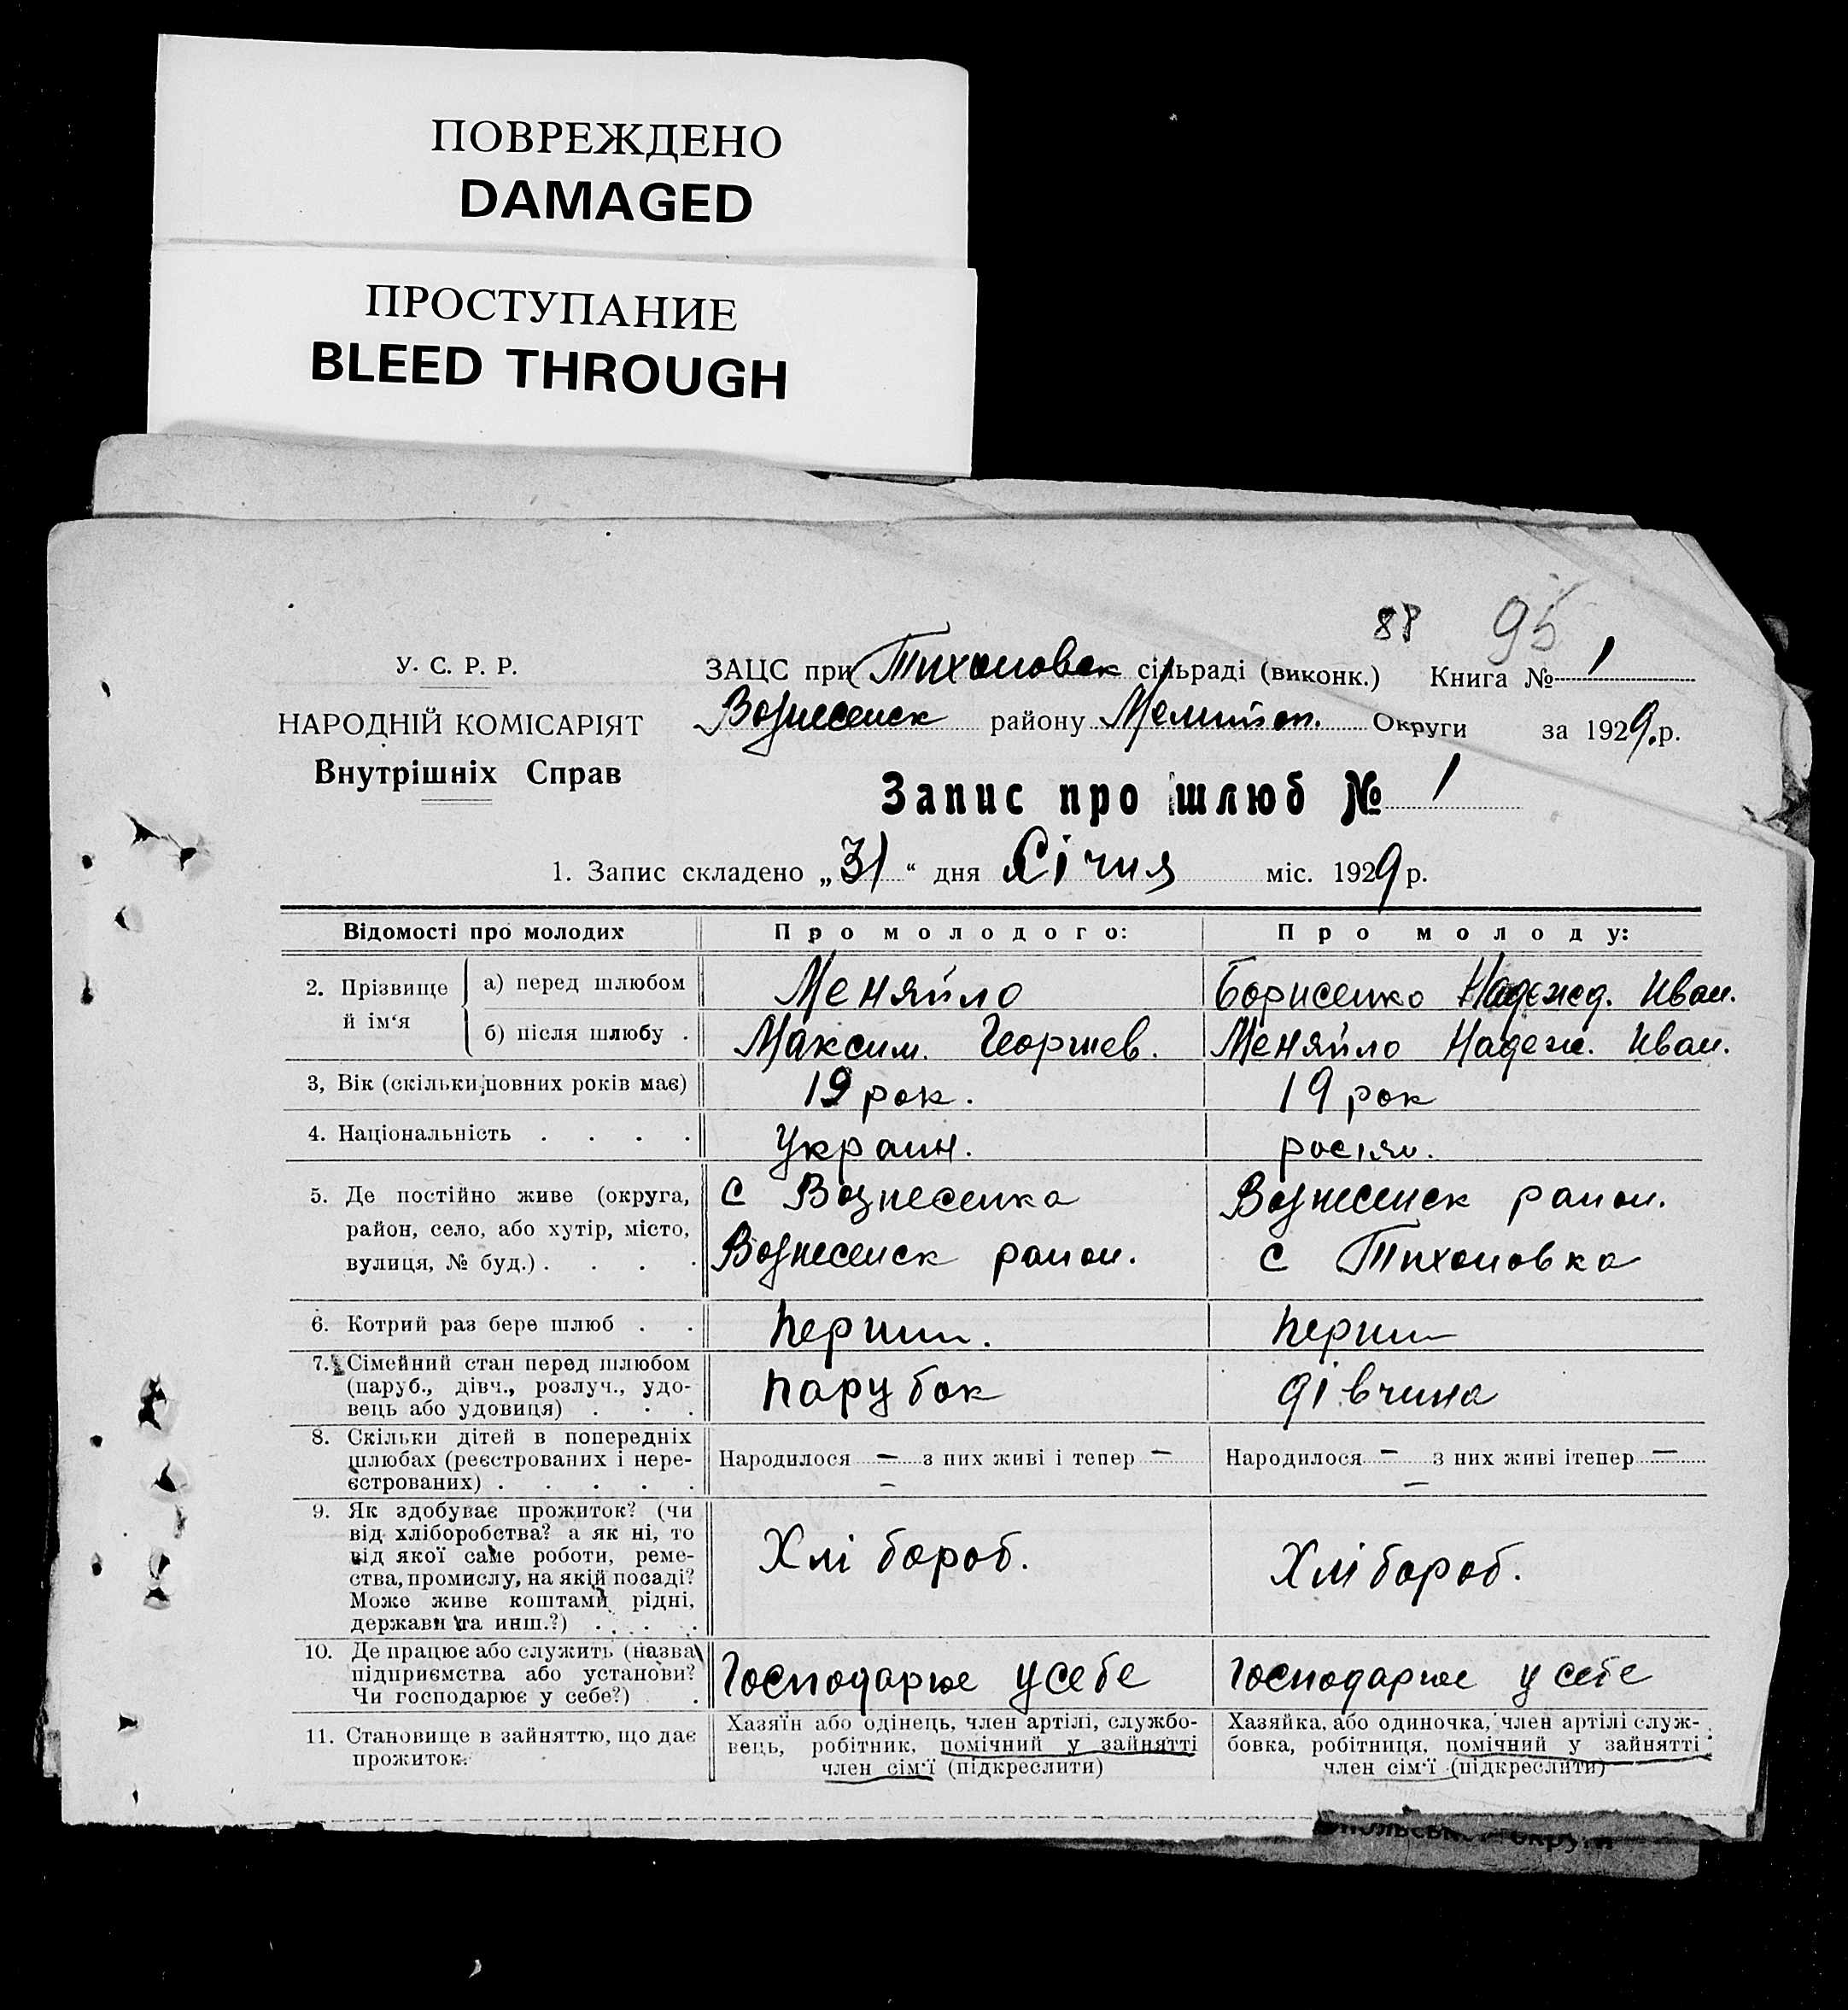 ПОВРЕЖДЕНО
DAMAGED
ПРОСТУПАНИЕ
BLEED THROUGH
88 95
У. С. Р. Р.
НАРОДНІЙ КОМІСАРІЯТ
Внутрішніх Справ
ЗАЦС при Тихоновск сільраді (виконк.) Книга № 1
Вознесенск району Мелитоп. Округи за 1929.р.
Запис про шлюб № 1
1. Запис складено „31“ дня Січня міс. 1929 р.
Відомості про молодих Про молодого: Про молоду:
2. Прізвище й ім‘я а) перед шлюбом Меняйло Борисенко Надежд. Иван.
б) після шлюбу . Максим. Георгиев. Меняйло Надеж. Иван.
3, Вік (скільки повних років має) 19 рок. 19 рок
4. Національність . . . . Украин. росіян.
5. Де постійно живе (округа, с Вознесенка Вознесенск район.
район, село, або хутір, місто,
вулиця, № буд.) . . . . Вознесенск район. с Тихоновка
6. Котрий раз бере шлюб . . Перший. Перший
7. Сімейний стан перед шлюбом
(паруб., дівч., розлуч., удо- парубок дівчина
вець або удовиця) . . .
8. Скільки дітей в попередніх
шлюбах (реєстрованих і нере- Народилося — з них живі і тепер — Народилося — з них живі ітепер —
єстрованих) . . . . . — —
9. Як здобуває прожиток? (чи
від хліборобства? а як ні, то
від якої саме роботи, реме- Хлібороб. Хлібороб.
ства, промислу, на якій посаді?
Може живе коштами рідні,
держави та инш.?) . . . .
10. Де працює або служить (назва
підприємства або установи? Господарює у себе Господарює у себе
Чи господарює у себе?) .
11. Становище в зайняттю, що дає прожиток.
Хазяїн або одінець, член артілі, службо-
вець, робітник, помічний у зайнятті
член сім‘ї (підкреслити)
Хазяйка, або одиночка, член артілі служ-
бовка, робітниця, помічний у зайнятті
член сім‘ї (підкреслити)
округи